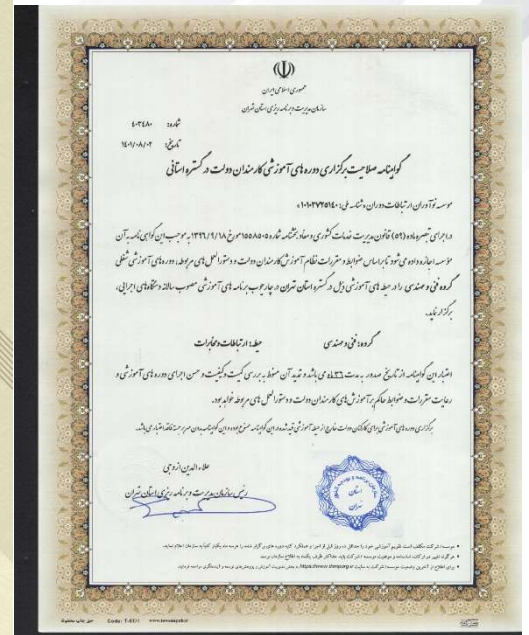 جمهوری اسلامی ایران
سازمان مدیریت و برنامه ریزی استان تهران
شماره: ۴۰۳۴۸۰
تاریخ: ۱۴۰۱/۰۸/۰۲
گواهینامه صلاحیت برگزاری دوره های آموزشی کارمندان دولت در گستره استانی
موسسه نوآوران ارتباطات دوران «شناسه ملی:
در اجرای تبصره ماده (۵۹) قانون مدیریت خدمات کشوری و مفاد بخشنامه شماره ۱۵۵۸۵۰۵ مورخ ۱۳۹۶/۹/۱۸ به موجب این گواهی نامه به آن
مؤسسه اجازه داده می شود تا براساس ضوابط و مقررات نظام آموزش کارمندان دولت و دستورالعمل های مربوطه، دوره های آموزشی شغلی
گروه فنی و مهندسی را در حیطه های آموزشی ذیل در گستره استان تهران در چارچوب برنامه های آموزشی مصوب سالانه دستگاه های اجرایی،
برگزار نماید.
گروه: فنی و مهندسی حیطه: ارتباطات و مخابرات
اعتبار این گواهینامه از تاریخ صدور به مدت ماه می باشد و تمدید آن منوط به بررسی کمیت و کیفیت و حسن اجرای دوره های آموزشی و
رعایت مقررات و ضوابط حاکم بر آموزش های کارمندان دولت و دستورالعمل های مربوطه خواهد بود.
برگزاری دوره های آموزشی برای کارکنان دولت خارج از حیطه آموزشی قید شده در این گواهینامه ممنوع بوده و این گواهینامه بدون مهر برجسته فاقد اعتبار می باشد.
علاءالدین ازوجی
رئیس سازمان مدیریت و برنامه ریزی استان تهران
استان
تهران